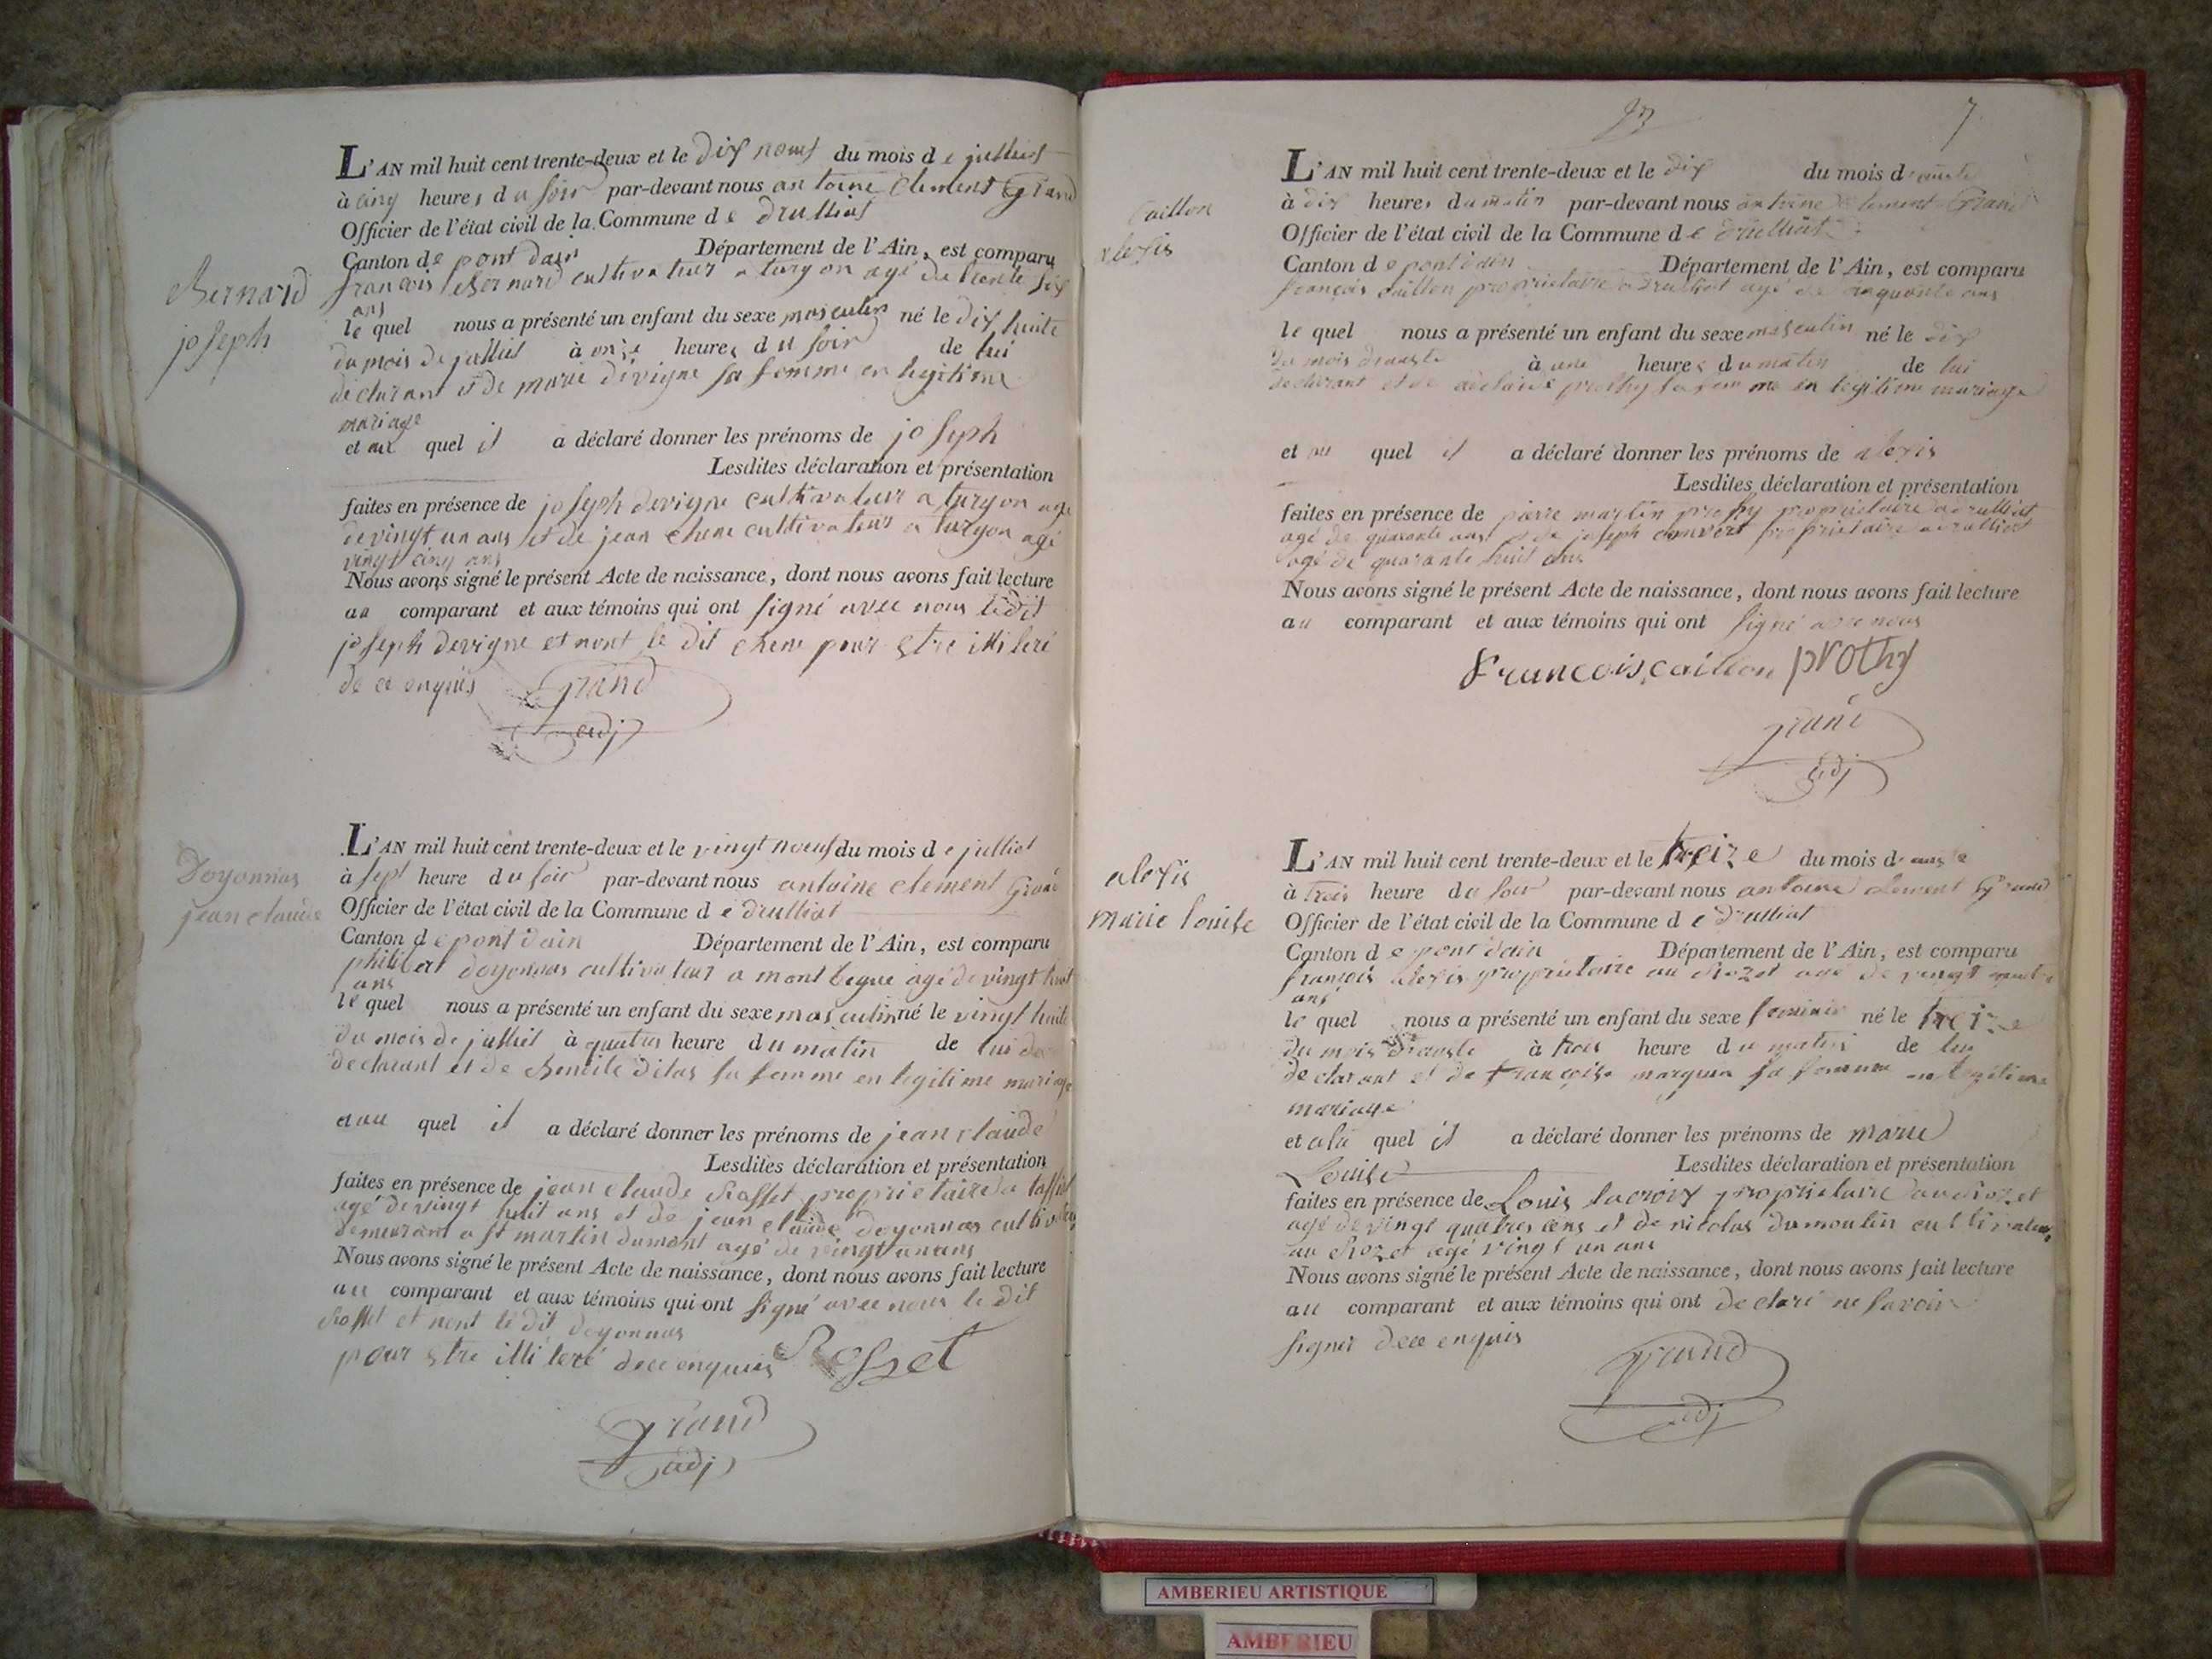 Bernard
joseph
L'AN mil huit cent trente-deux et le dix neuf du mois de julliet
à cinq heures du soir par-devant nous antoine Clement Grand
Officier de l'état civil de la Commune de druilliat
Canton de pont dain Département de l'Ain, est comparu
françois Bernard cultivateur a turgon agé de trente six
ans
le quel nous a présenté un enfant du sexe masculin né le dix huite
du mois de julliet à onze heures du soir de lui
déclarant et de marie devigne sa femme en legitime
mariage
et au quel il a déclaré donner les prénoms de joseph
Lesdites déclaration et présentation
faites en présence de joseph devigne cultivateur a turgon agé
de vingt un ans et de jean chene cultivateur a turgon agé
vingt cinq ans
Nous avons signé le présent Acte de naissance, dont nous avons fait lecture
au comparant et aux témoins qui ont signé avec nous ledit
joseph devigne et nont le dit chene pour etre illiteré
de ce enquis Grand
adj
Doyonnas
jean claude
L'AN mil huit cent trente-deux et le vingt neuf du mois de julliet
à sept heure du soir par-devant nous antoine clement Grand
Officier de l'état civil de la Commune de drulliat
Canton de pont dain Département de l'Ain, est comparu
philibert doyonnas cultivateur a mont begue agé de vingt huit
ans
le quel nous a présenté un enfant du sexe masculin né le vingt huite
du mois de julliet à quatres heure du matin de lui de
declarant et de Benoite ditas sa femme en legitime mariage
et au quel il a déclaré donner les prénoms de jean claude
Lesdites déclaration et présentation
faites en présence de jean claude Rosset proprietaire a
agé de vingt huit ans et de jean claude doyonnas cultivateur
demeurant a st martin dumont agé de vingt un ans
Nous avons signé le présent Acte de naissance, dont nous avons fait lecture
au comparant et aux témoins qui ont signé avec nous le dit
Rosset et nont le dit doyonnas
pour etre illiteré dece enquis Rosset
Grand
adj
7
Caillon
alexis
L'AN mil huit cent trente-deux et le dix du mois d'auste
à dix heures du matin par-devant nous antoine Clement Grand
Officier de l'état civil de la Commune de drulliat
Canton de pont dain Département de l'Ain, est comparu
françois caillon proprietaire a drulliat agé de cinquante ans
le quel nous a présenté un enfant du sexe masculin né le dix
du mois dauste à une heures du matin de lui
declarant et de adelaide prothy sa femme en legitime mariage
et au quel il a déclaré donner les prénoms de alexis
Lesdites déclaration et présentation
faites en présence de pierre martin prothy proprietaire a drulliat
agé de quarante ans et de joseph convert proprietaire a drulliat
agé de quarante huit ans
Nous avons signé le présent Acte de naissance, dont nous avons fait lecture
au comparant et aux témoins qui ont signé avec nous
francois caillon prothy
Grand
adj
alexis
marie louise
L'AN mil huit cent trente-deux et le treize du mois d'auste
à trois heure du soir par-devant nous antoine clement Grand
Officier de l'état civil de la Commune de drulliat
Canton de pont dain Département de l'Ain, est comparu
françois alexis proprietaire au Rozet agé de vingt quatre
ans
le quel nous a présenté un enfant du sexe feminin né le treize
du mois dauste à trois heure du matin de lui
declarant et de françoise marguin sa femme en legitime
mariage
et ala quel il a déclaré donner les prénoms de marie
Louise Lesdites déclaration et présentation
faites en présence de Louis lacroix proprietaire au Rozet
agé de vingt quatres ans et de nicolas dumoulin cultivateur
au Rozet agé vingt un ans
Nous avons signé le présent Acte de naissance, dont nous avons fait lecture
au comparant et aux témoins qui ont declaré ne savoir
signer dece enquis
Grand
adj
AMBERIEU ARTISTIQUE
AMBERIEU